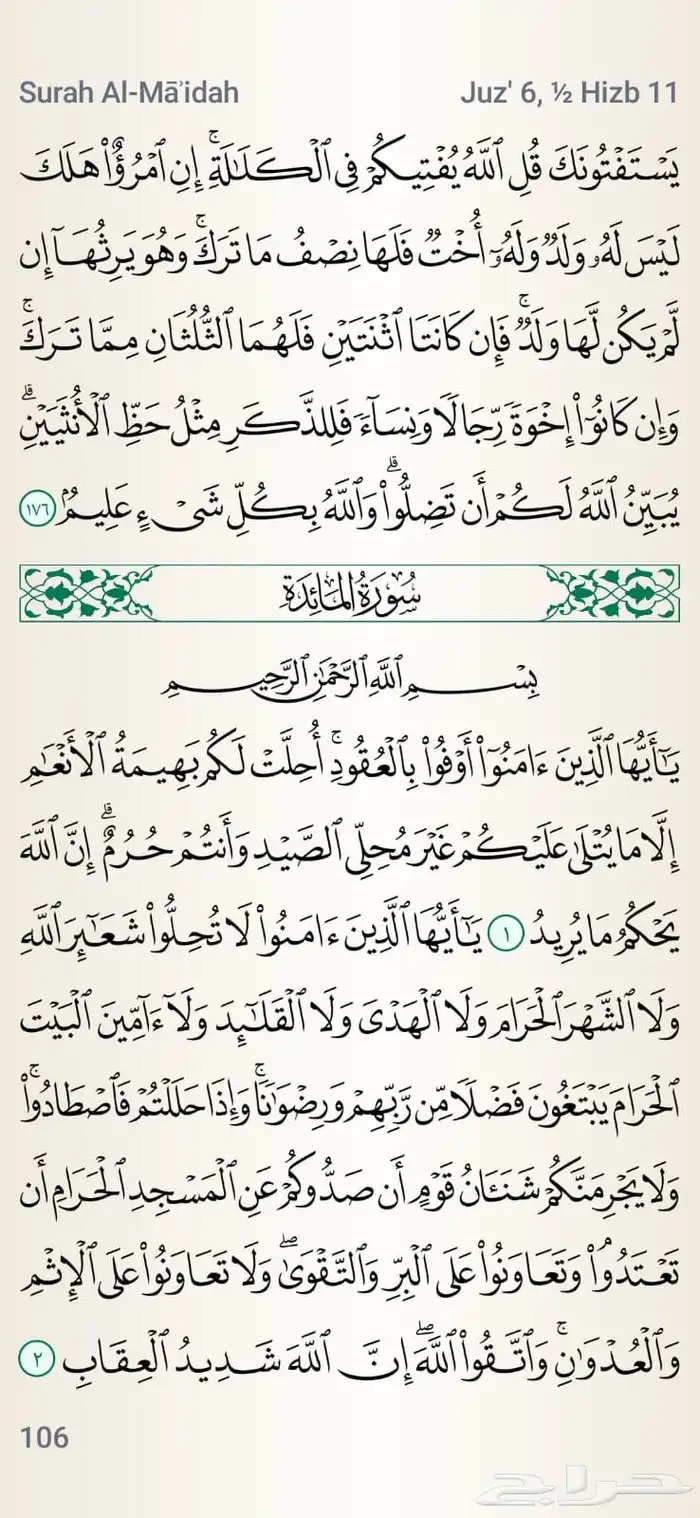 Surah Al-Mā'idah Juz' 6, ½ Hizb 11
يَسۡتَفۡتُونَكَ قُلِ ٱللَّهُ يُفۡتِيكُمۡ فِي ٱلۡكَلَٰلَةِۚ إِنِ ٱمۡرُؤٌاْ هَلَكَ
لَيۡسَ لَهُۥ وَلَدٞ وَلَهُۥٓ أُخۡتٞ فَلَهَا نِصۡفُ مَا تَرَكَۚ وَهُوَ يَرِثُهَآ إِن
لَّمۡ يَكُن لَّهَا وَلَدٞۚ فَإِن كَانَتَا ٱثۡنَتَيۡنِ فَلَهُمَا ٱلثُّلُثَانِ مِمَّا تَرَكَۚ
وَإِن كَانُوٓاْ إِخۡوَةٗ رِّجَالٗا وَنِسَآءٗ فَلِلذَّكَرِ مِثۡلُ حَظِّ ٱلۡأُنثَيَيۡنِۗ
يُبَيِّنُ ٱللَّهُ لَكُمۡ أَن تَضِلُّواْۗ وَٱللَّهُ بِكُلِّ شَيۡءٍ عَلِيمُۢ ١٧٦
سُورَةُ المَائِدَةِ
بِسۡمِ ٱللَّهِ ٱلرَّحۡمَٰنِ ٱلرَّحِيمِ
يَٰٓأَيُّهَا ٱلَّذِينَ ءَامَنُوٓاْ أَوۡفُواْ بِٱلۡعُقُودِۚ أُحِلَّتۡ لَكُم بَهِيمَةُ ٱلۡأَنۡعَٰمِ
إِلَّا مَا يُتۡلَىٰ عَلَيۡكُمۡ غَيۡرَ مُحِلِّي ٱلصَّيۡدِ وَأَنتُمۡ حُرُمٌۗ إِنَّ ٱللَّهَ
يَحۡكُمُ مَا يُرِيدُ ١ يَٰٓأَيُّهَا ٱلَّذِينَ ءَامَنُواْ لَا تُحِلُّواْ شَعَٰٓئِرَ ٱللَّهِ
وَلَا ٱلشَّهۡرَ ٱلۡحَرَامَ وَلَا ٱلۡهَدۡيَ وَلَا ٱلۡقَلَٰٓئِدَ وَلَآ ءَآمِّينَ ٱلۡبَيۡتَ
ٱلۡحَرَامَ يَبۡتَغُونَ فَضۡلٗا مِّن رَّبِّهِمۡ وَرِضۡوَٰنٗاۚ وَإِذَا حَلَلۡتُمۡ فَٱصۡطَادُواْۚ
وَلَا يَجۡرِمَنَّكُمۡ شَنَـَٔانُ قَوۡمٍ أَن صَدُّوكُمۡ عَنِ ٱلۡمَسۡجِدِ ٱلۡحَرَامِ أَن
تَعۡتَدُواْۘ وَتَعَاوَنُواْ عَلَى ٱلۡبِرِّ وَٱلتَّقۡوَىٰۖ وَلَا تَعَاوَنُواْ عَلَى ٱلۡإِثۡمِ
وَٱلۡعُدۡوَٰنِۚ وَٱتَّقُواْ ٱللَّهَۖ إِنَّ ٱللَّهَ شَدِيدُ ٱلۡعِقَابِ ٢
106
حراج